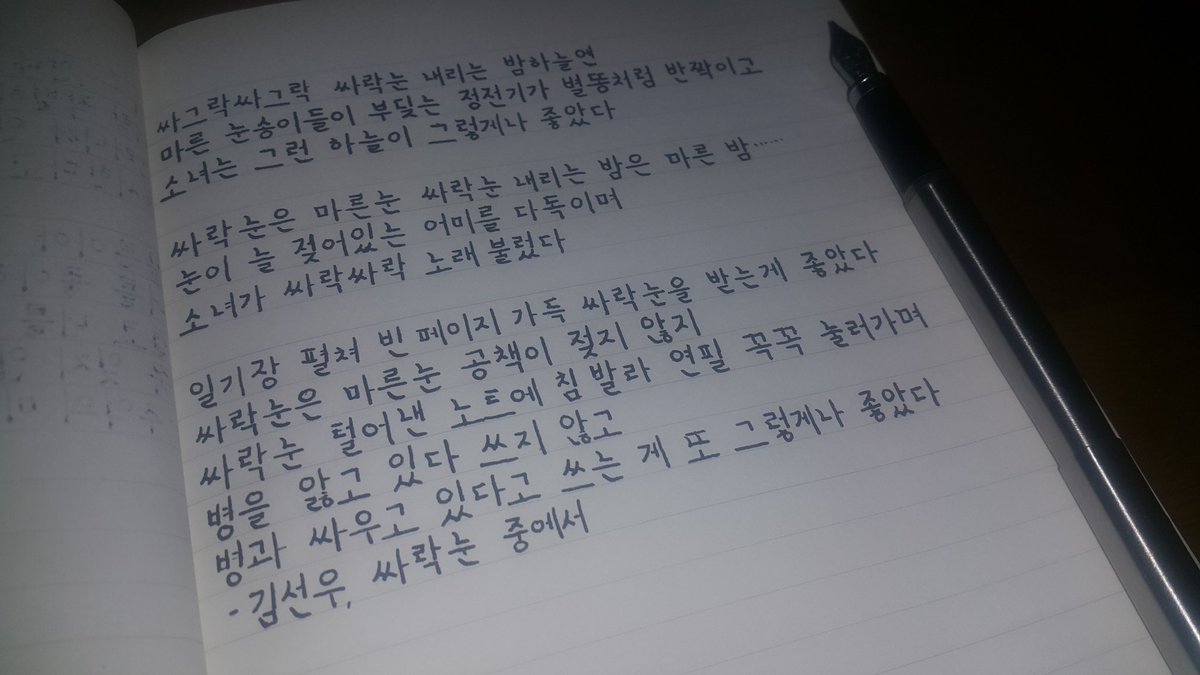 싸그락싸그락 싸락눈 내리는 밤하늘엔
마른 눈송이들이 부딪는 정전기가 별똥처럼 반짝이고
소녀는 그런 하늘이 그렇게나 좋았다
싸락눈은 마른눈 싸락눈 내리는 밤은 마른 밤……
눈이 늘 젖어있는 어미를 다독이며
소녀가 싸락싸락 노래불렀다
일기장 펼쳐 빈 페이지 가득 싸락눈을 받는게 좋았다
싸락눈은 마른눈 공책이 젖지 않지
싸락눈 털어낸 노트에 침 발라 연필 꼭꼭 눌러가며
병을 앓고 있다 쓰지 않고
병과 싸우고 있다고 쓰는 게 또 그렇게나 좋았다
- 김선우, 싸락눈 중에서